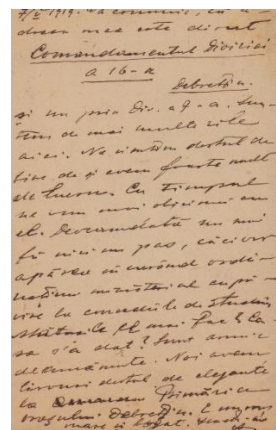 7/V 1919. Să comunici, că a-
dresa mea este direct
Comandamentul Diviziei
a 16-a
Debrețin.
și nu prin Div. a 7-a. Sun-
tem de mai multe zile
aici. Ne simțim destul de
bine, deși avem foarte mult
de lucru. Cu timpul
ne vom mai obicinui cu
el. Deocamdată nu mai
fă nici un pas, căci vor
apărea în curând ordi-
ministerial cu pri-
vire la
ce mai fac? Ca
sa s'a dat? Sunt
Noi avem
birouri destul de elegante
la Primăria
orașului. Debrețin. E un oraș
mare și bogat.